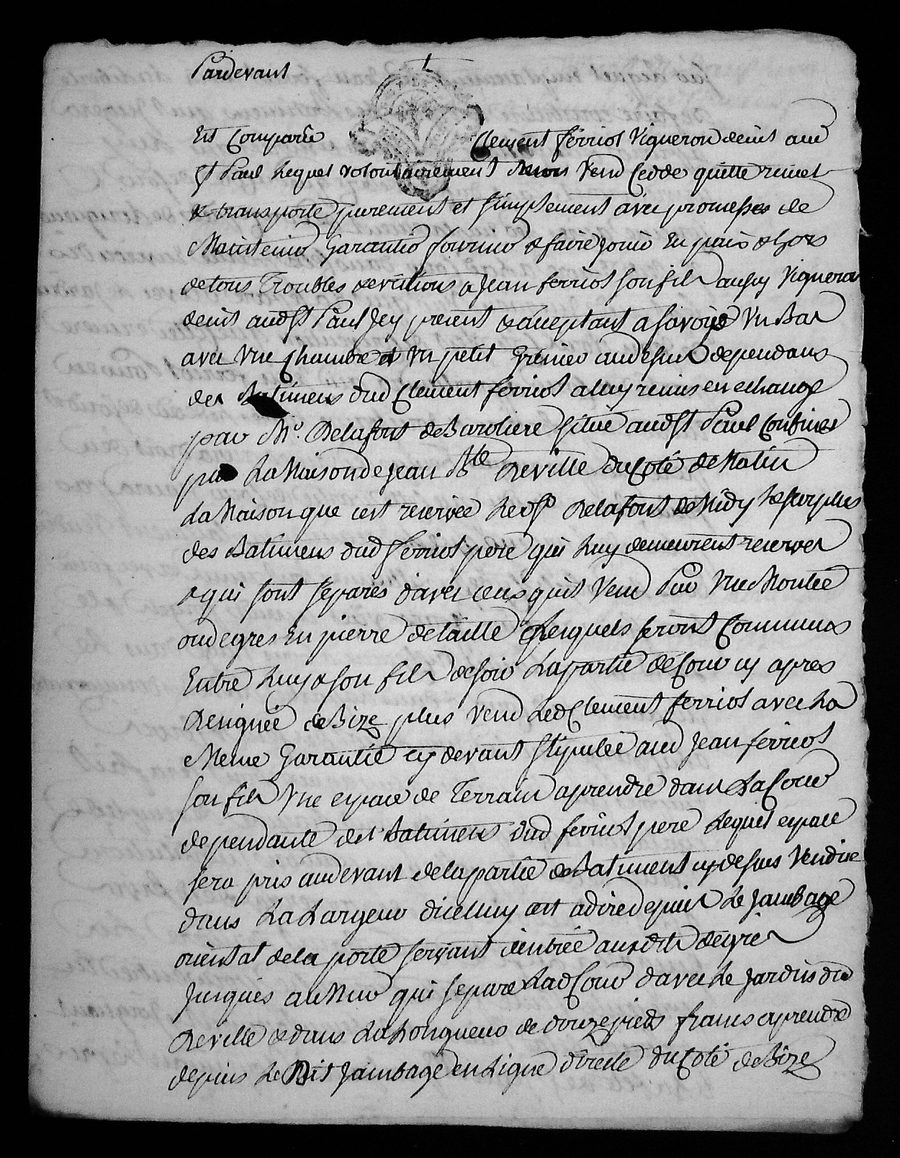 Pardevant
Est Comparu Clement ferriol Vigneron demt aud
St Paul Lequel volontairement a Vend Cedde quitte remet
& transporte purement et simplement avec promesses de
Maintenir Garantir fournir & faire jouir En paix & hors
de tous Troubles & evictions a Jean ferriol son fils aussy Vigneron
demt audt St Paul Jcy present & acceptant a savoir Un Bas
avec Une Chambre et Un petit Grenier au dessus dependans
des Batimens dud Clement ferriol a luy remis en echange
par Mr. Delafont de Baroliere situé audt St Paul Confinés
par La Maison de Jean Bte Reville du Coté de Matin
La Maison que s'est reservée led Sr Delafont de Midy Le surplus
des Batimens dud ferriol pere qui luy demeurent reservés
& qui sont separés d'avec ceux qu'il Vend Par Une Montée
ou degres En pierre de taille Lesquels seront Communs
Entre Luy & son fils de soir La partie de Cour cy apres
designée de Bize plus Vend Led Clement ferriol avec La
Meme Garantie cy devant stipulée aud Jean ferriol
son fils Une espace de Terrain a prendre dans La Cour
dependante des Batimens dud ferriol pere Lequel espace
sera pris au devant de la partie de Batiment cy dessus Vendue
dans La Largeur d'icelluy c'est a dire depuis Le Jambage
oriental de la porte servant d'entrée auxdits degrés
Jusques au Mur qui separe Lad Cour d'avec Le Jardin du
Reville & dans La Longueur de douze pieds francs a prendre
depuis Le Dit Jambage en Ligne directe du Coté de Bize